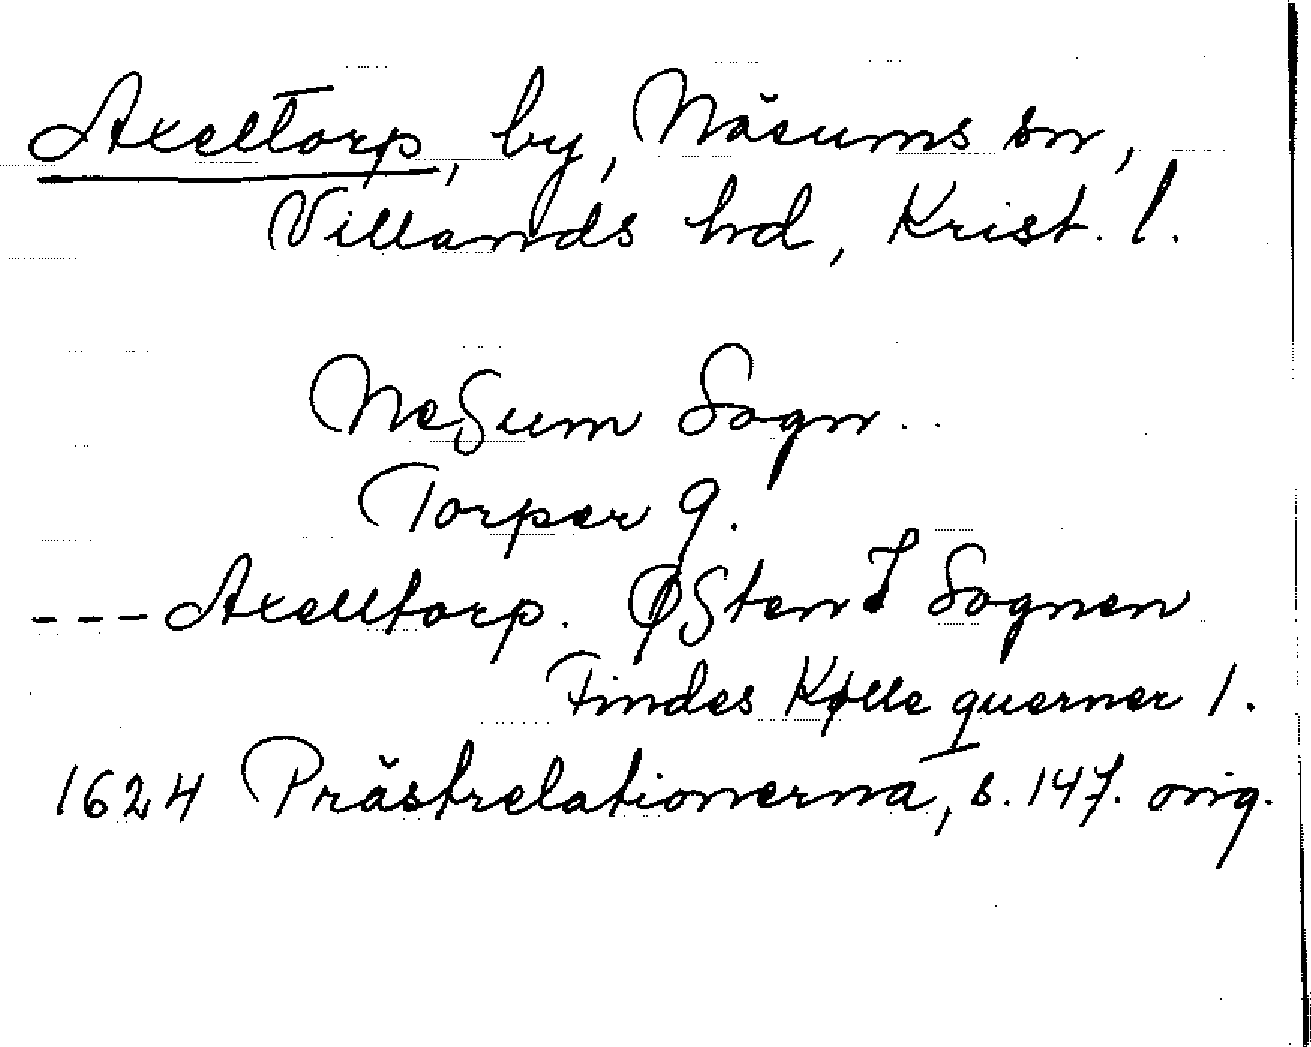 Axeltorp, by, Näsums sn,
Villands hd, Krist. l.
NeSum Sogn..
Torper 9.
--- Axelltorp. ØSten I Sognen
Findes Kølle querner 1.
1624 Prästrelationerna, s. 147. orig.